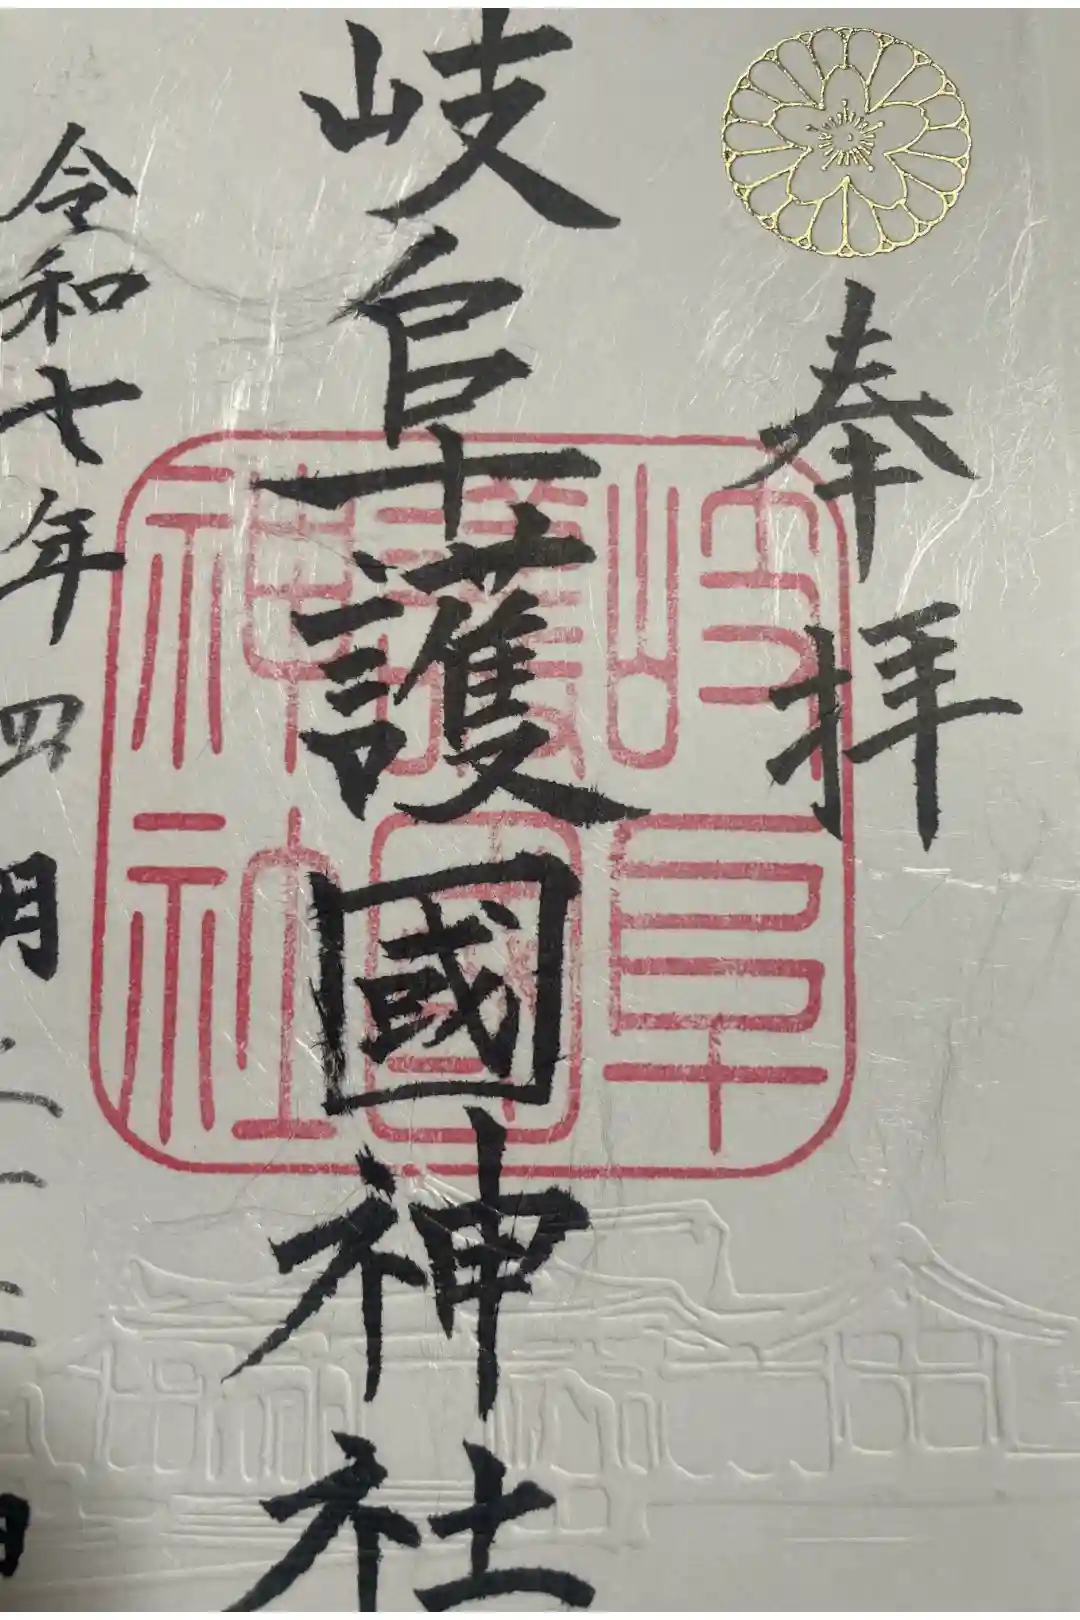 奉拝
岐阜護國神社
岐阜
護國
神社
令和七年四月二